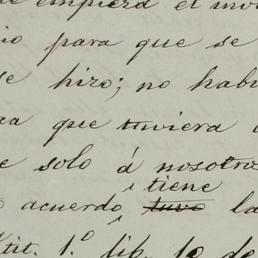 empiera el mo
io para que se
se hizo; no habi
ra que tuviera
e solo á nosotros
tiene
acuerdo, tuvo la
tit. 1.º lib. 1º de